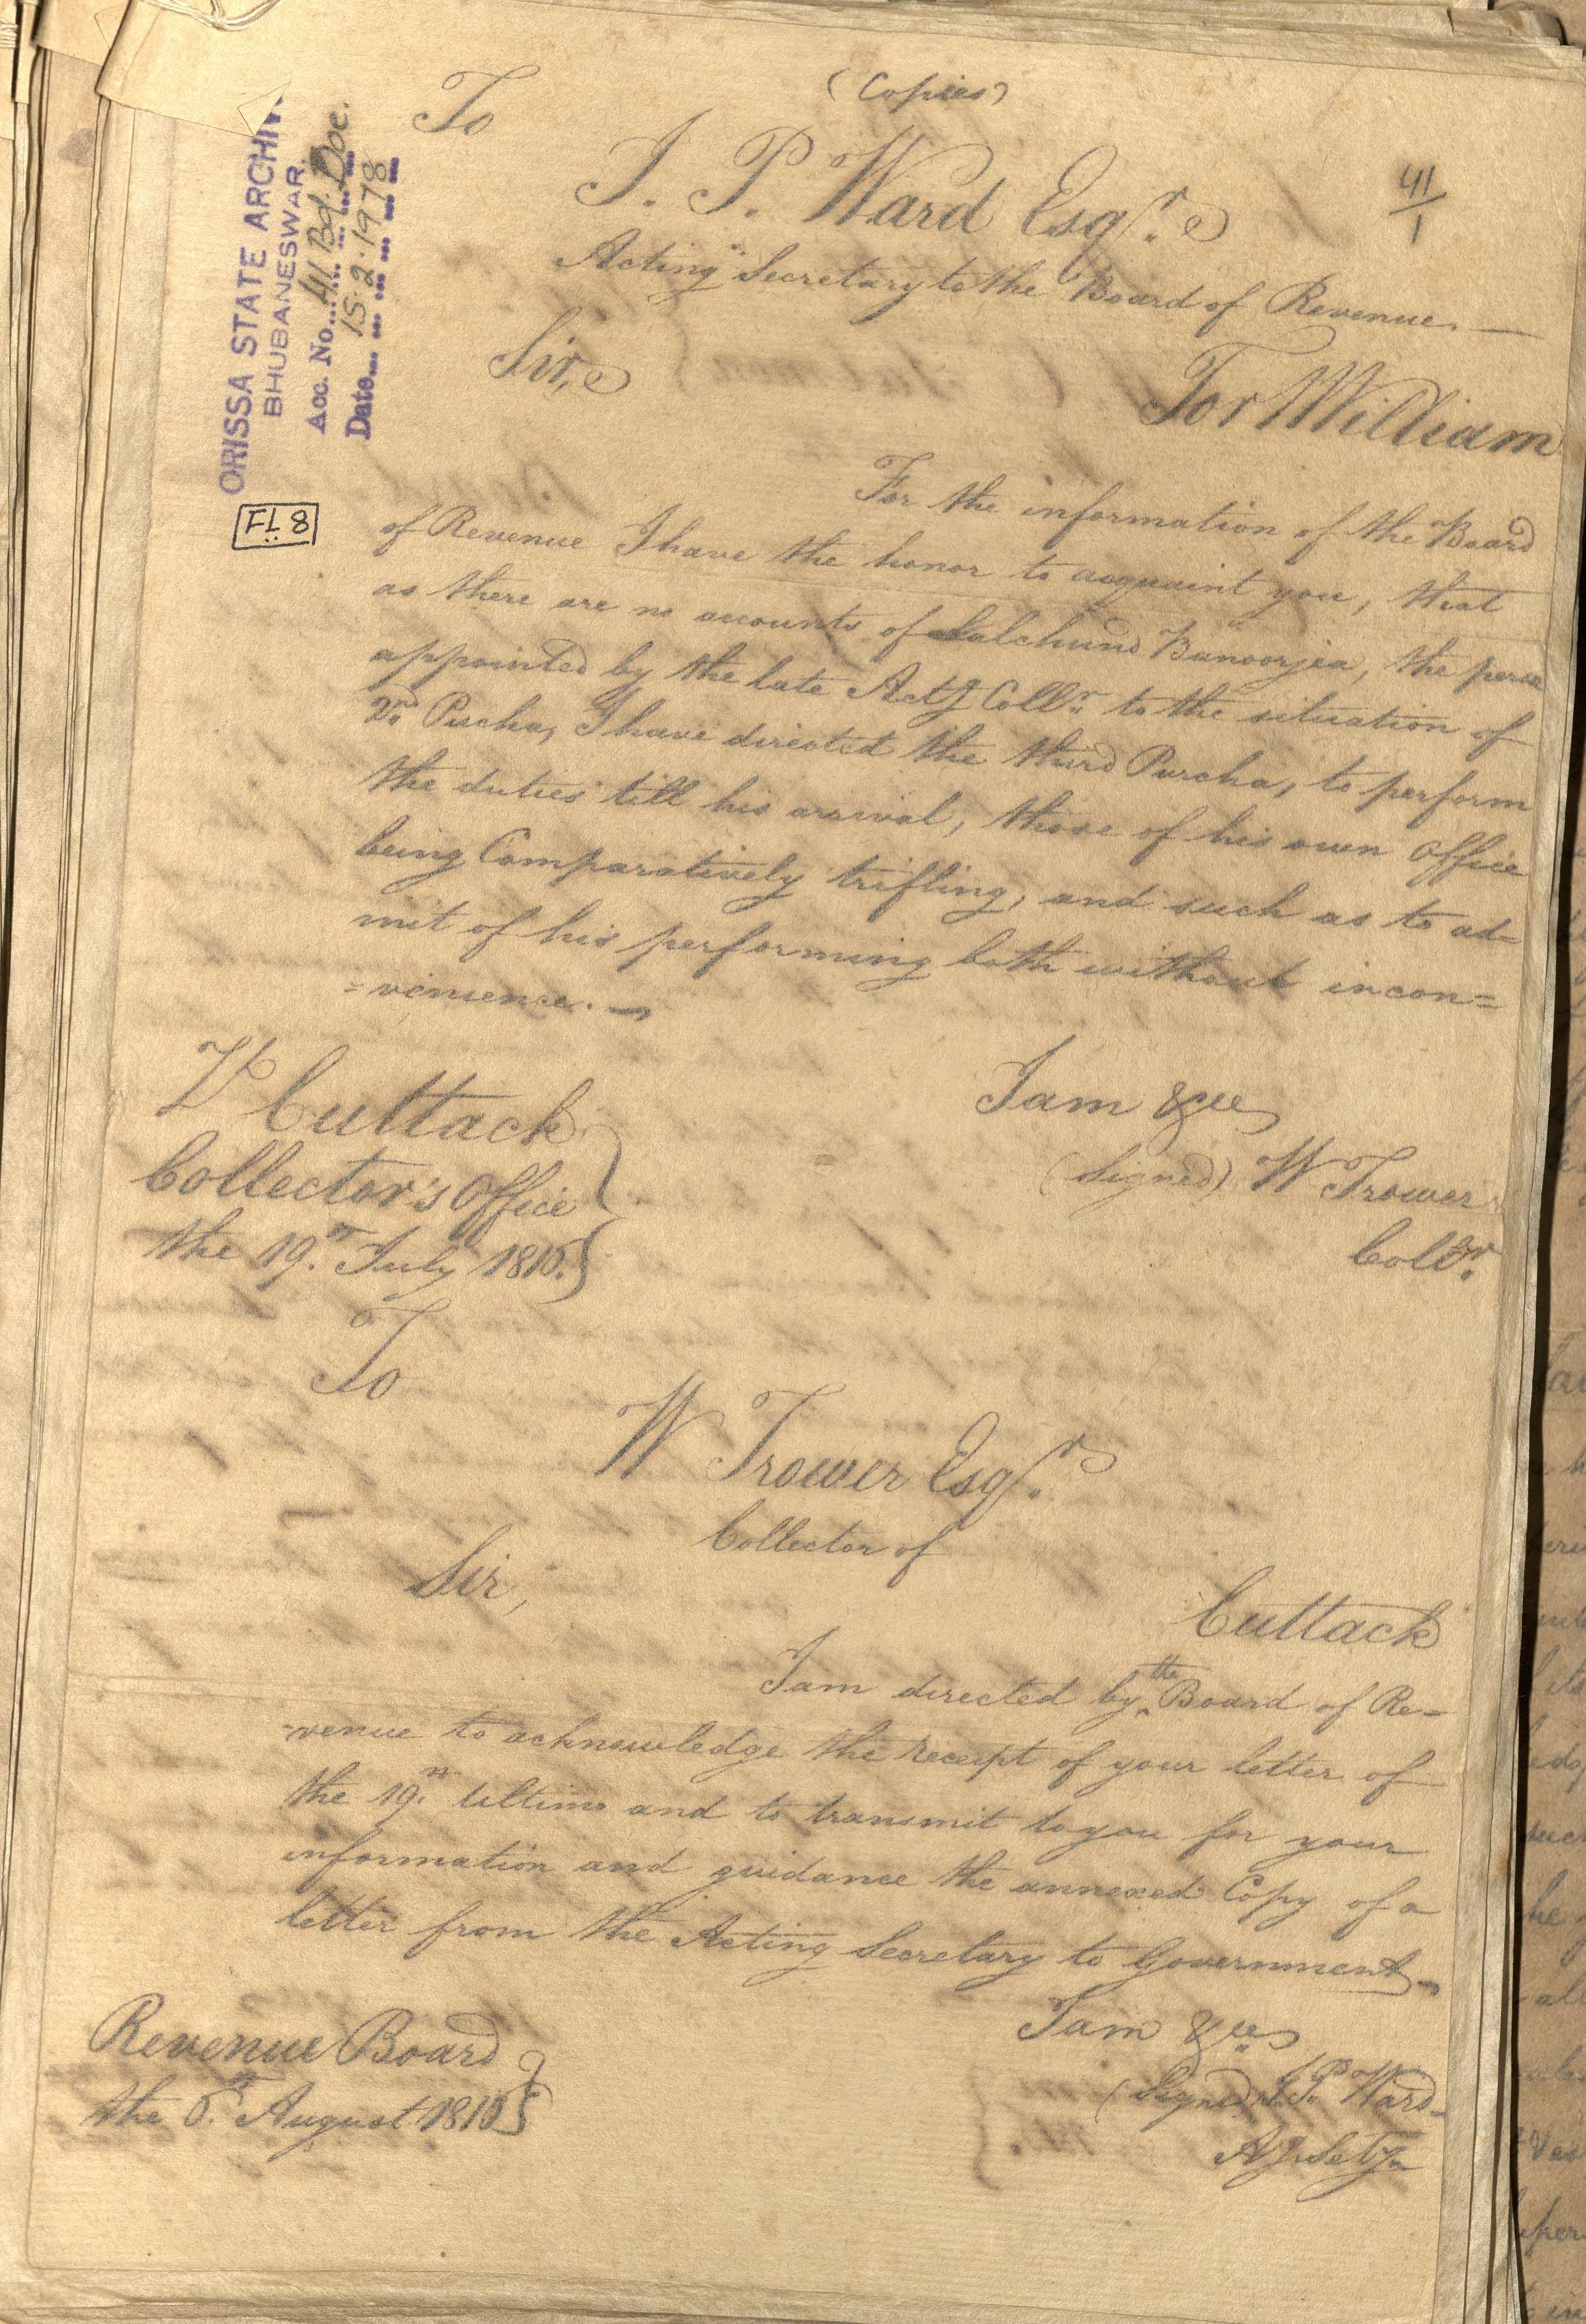 (Copies)
To
J. P. Ward Esqr.
41/1
Acting Secretary to the Board of Revenue.
Sir,
Fort William
For the information of the Board
of Revenue I have the honor to acquaint you, that
as there are no accounts of Lalchund Banoorjea, the person
appointed by the late Actg Collr. to the situation of
2d. Purcha, I have directed the third Purcha, to perform
the duties till his arrival, those of his own office
being Comparatively trifling, and such as to ad=
mit of his performing both without incon=
=venience.
I am &ca
Zh Cuttack
Collector's Office
the 19th July 1810.
(Signed) W Trower
Collr.
To
W Trower Esqr.
Collector of
Cuttack
Sir,
I am directed by the Board of Re=
=venue to acknowledge the receipt of your letter of
the 19th. Ultimo and to transmit to you for your
information and guidance the annexed Copy of a
letter from the Acting Secretary to Government
I am &ca
Revenue Board
the August 1810
(Signed) J. P. Ward
Ag. Secty
ORISSA STATE ARCHIV
BHUBANESWAR.
Acc. No. 41 Bd. Doc.
Date 15.2.1978
FL 8